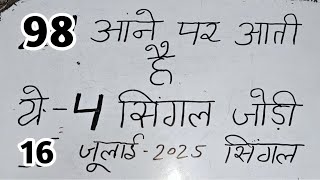 98 आने पर आती
है
ये-4 सिंगल जोड़ी
16 जूलाई-2025 सिंगल